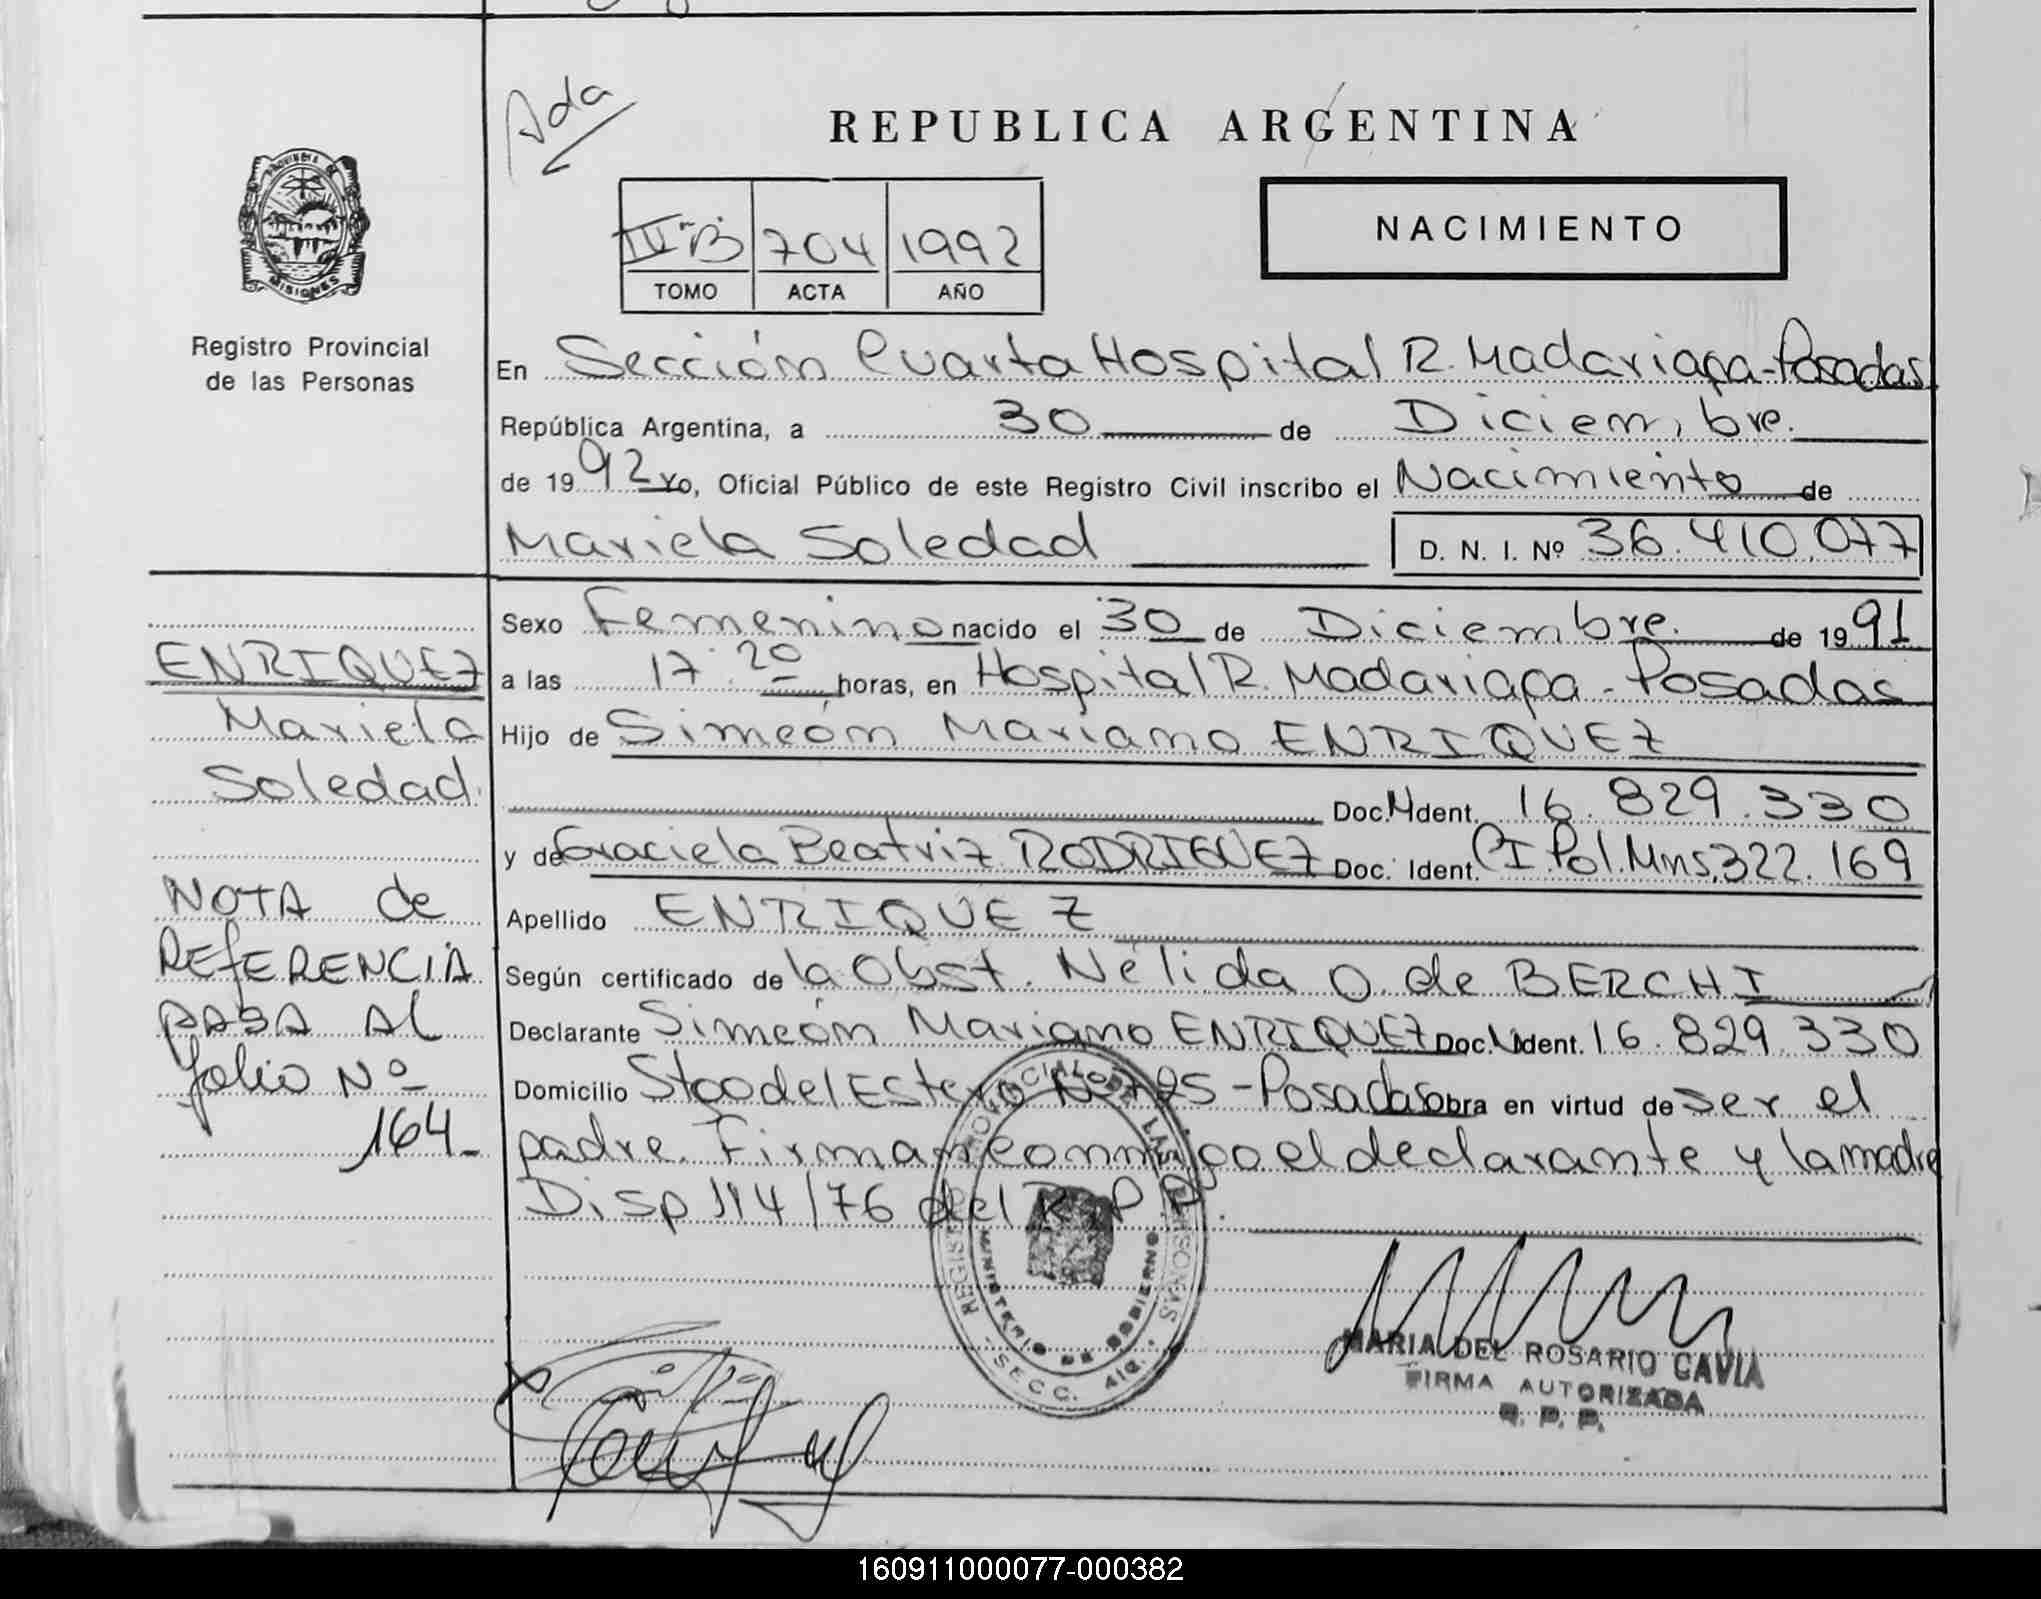 Ada
REPUBLICA ARGENTINA
PROVINCIA DE
MISIONES
Registro Provincial
de las Personas
IV-B 704 1992
TOMO ACTA AÑO
NACIMIENTO
En Sección Cuarta Hospital R. Madariaga-Posadas
República Argentina, a 30 de Diciembre.
de 1992 Yo, Oficial Público de este Registro Civil inscribo el Nacimiento de
Mariela Soledad D. N. I. Nº 36.410.077
Sexo Femenino nacido el 30 de Diciembre. de 1991
a las 17:20 horas, en Hospital R. Madariaga - Posadas
Hijo de Simeón Mariano ENRIQUEZ
Doc. Ident. 16.829.330
y de Graciela Beatriz RODRIGUEZ Doc. Ident. CI. Pol. Mns. 322.169
Apellido ENRIQUEZ
Según certificado de la Obst. Nélida O. de BERCHI
Declarante Simeón Mariano ENRIQUEZ Doc. Ident. 16.829.330
Domicilio Stgo del Estero Nº 125 - Posadas obra en virtud de ser el
padre. Firman conmigo el declarante y la madre
Disp 114/76 del R.P.P.
ENRIQUEZ
Mariela
Soledad.
NOTA de
REFERENCIA
PASA AL
folio Nº
164-
REGISTRO PROVINCIAL DE LAS PERSONAS
MINISTERIO DE GOBIERNO
SECC. 4ta.
MARIA DEL ROSARIO GAVIA
FIRMA AUTORIZADA
R. P. P.
160911000077-000382